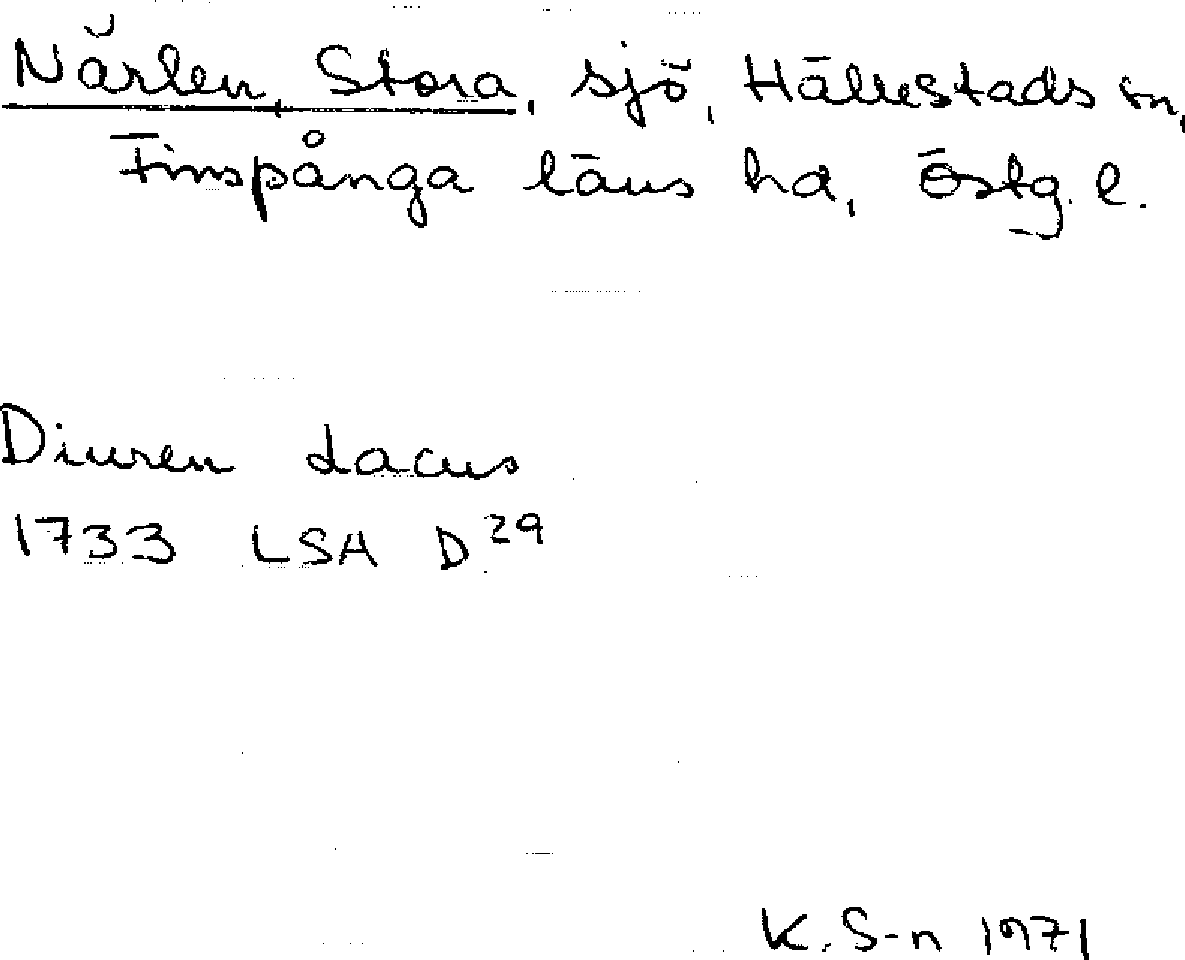 Närlen, Stora, sjö, Hällestads sn,
Finspånga läns hd, Östg. l.
Diuren Lacus
1733 LSA D 29
K. S-n 1971